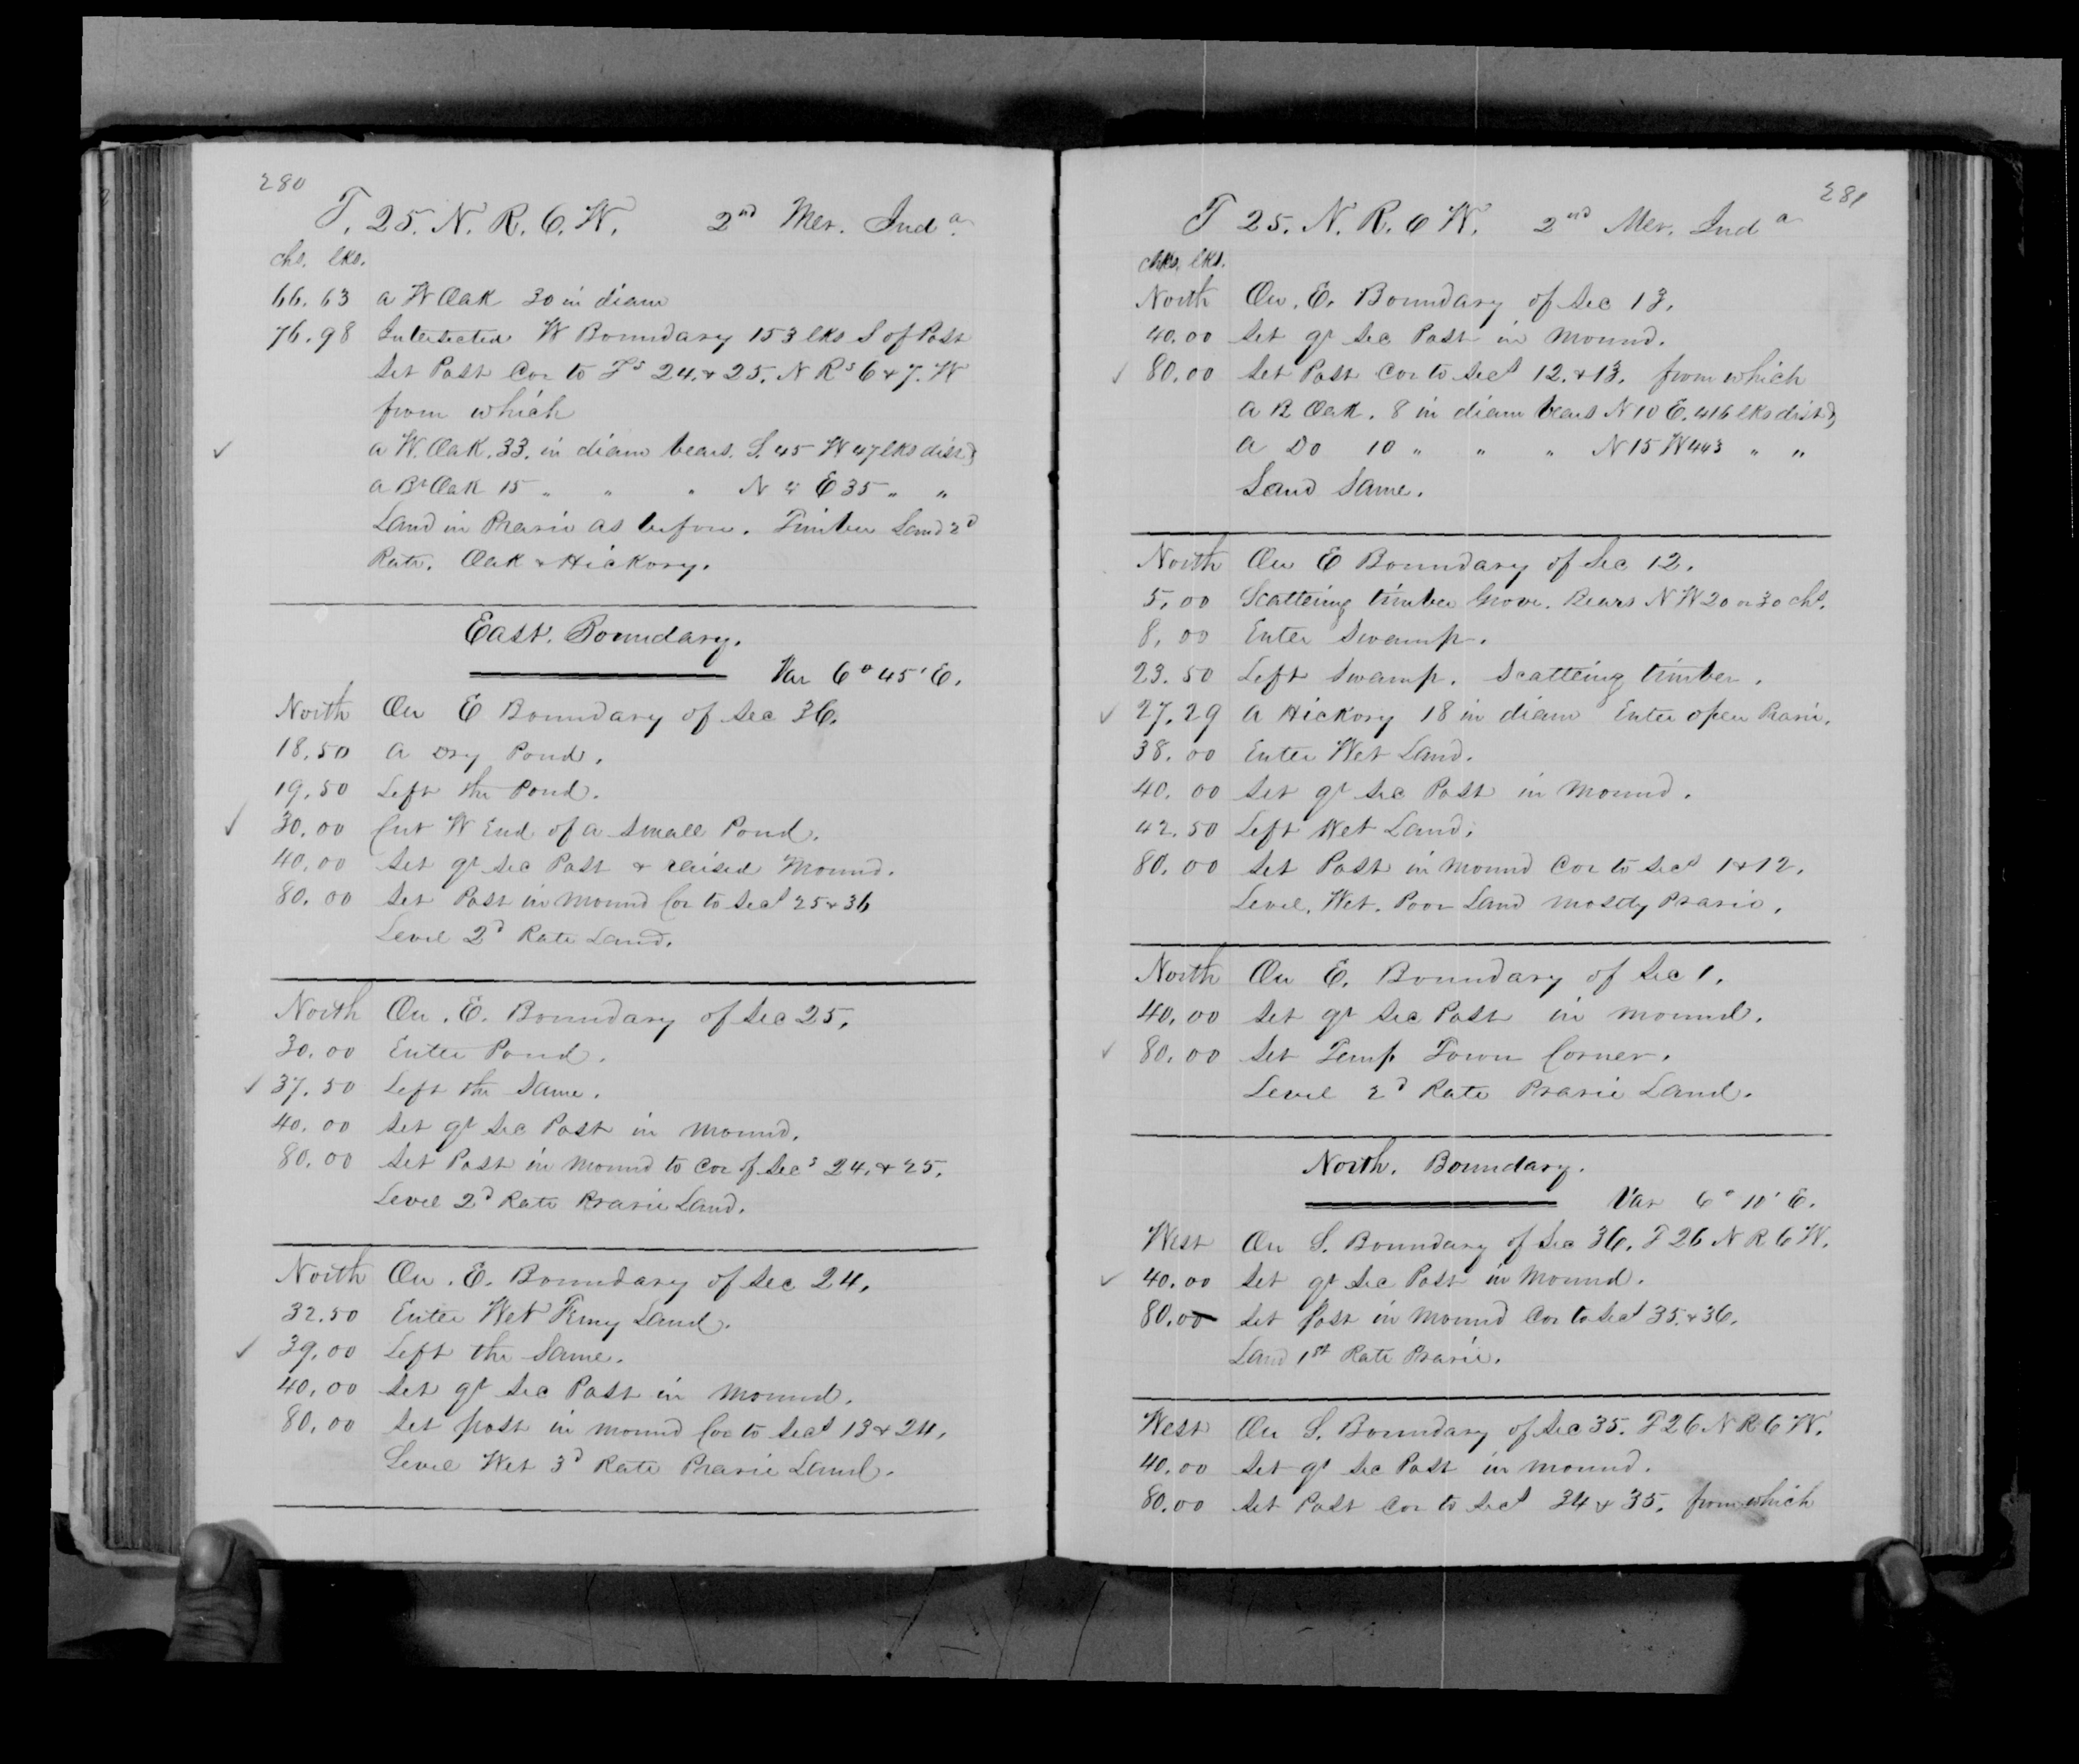 280
T. 25. N. R. 6. W. 2nd Mer. Inda.
chs. lks.
66.63 a W Oak 30 in diam
76.98 Intersected W Boundary 153 lks S of Post
Set Post Cor to Ts 24. & 25. N Rs 6 & 7. W
from which
a W. Oak. 33. in diam bears. S. 45 W 47 lks dist }
a Br Oak 15 " " " N 4 E 35 " "
Land in Prarie as before. Timber Land 2d
Rate. Oak & Hickory.
East. Boundary.
Var 6° 45' E.
North On E Boundary of Sec 36.
18.50 a Dry Pond.
19.50 Left the Pond.
30.00 Cut W End of a Small Pond.
40.00 Set qr Sec Post & raised Mound.
80.00 Set Post in Mound Cor to Secs 25 & 36
Level 2d Rate Land.
North On. E. Boundary of Sec 25.
30.00 Enter Pond.
37.50 Left the Same.
40.00 Set qr Sec Post in Mound.
80.00 Set Post in Mound to Cor of Secs 24. & 25.
Level 2d Rate Prarie Land.
North On. E. Boundary of Sec 24.
32.50 Enter Wet Land.
39.00 Left the Same.
40.00 Set qr Sec Post in Mound.
80.00 Set post in mound Cor to Secs 13 & 24.
Level Wet 3d Rate Prarie Land.
281
T 25. N. R. 6 W. 2nd Mer. Inda
chs. lks.
North On. E. Boundary of Sec 13.
40.00 Set qr Sec Post in Mound.
80.00 Set Post Cor to Secs 12. & 13. from which
a B Oak. 8 in diam bears N 10 E. 416 lks dist }
a Do 10 " " " N 15 W 443 " "
Land Same.
North On E Boundary of Sec 12.
5.00 Scattering timber Grove. Bears N W 20 or 30 chs.
8.00 Enter Swamp.
23.50 Left Swamp. Scattering timber.
27.29 a Hickory 18 in diam Enter open Prarie.
38.00 Enter Wet Land.
40.00 Set qr Sec Post in Mound.
42.50 Left Wet Land.
80.00 Set Post in Mound Cor to Secs 1 & 12.
Level. Wet. Poor Land mostly Prarie.
North On E. Boundary of Sec 1.
40.00 Set qr Sec Post in Mound.
80.00 Set Temp Town Corner.
Level 2d Rate Prarie Land.
North. Boundary.
Var 6° 10' E.
West On S. Boundary of Sec 36. T 26 N R 6 W.
40.00 Set qr Sec Post in Mound.
80.00 Set Post in Mound Cor to Secs 35. & 36.
Land 1st Rate Prarie.
West On S. Boundary of Sec 35. T 26 N R 6 W.
40.00 Set qr Sec Post in Mound.
80.00 Set Post Cor to Secs 34 & 35. from which